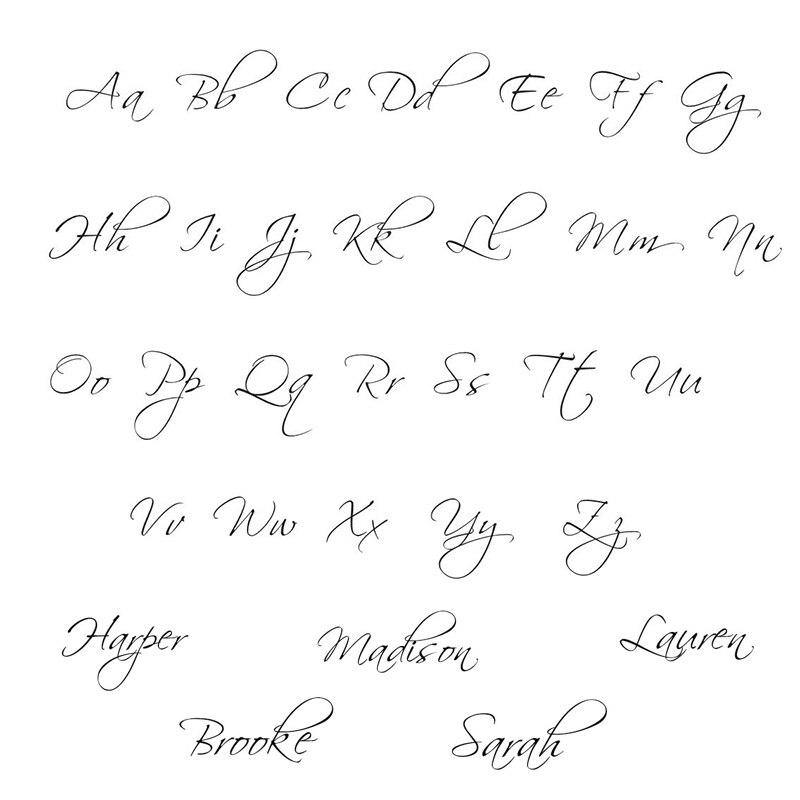 Aa Bb Cc Dd Ee Ff Gg
Hh Ii Jj Kk Ll Mm Nn
Oo Pp Qq Rr Ss Tt Uu
Vv Ww Xx Yy Zz
Harper Madison Lauren
Brooke Sarah